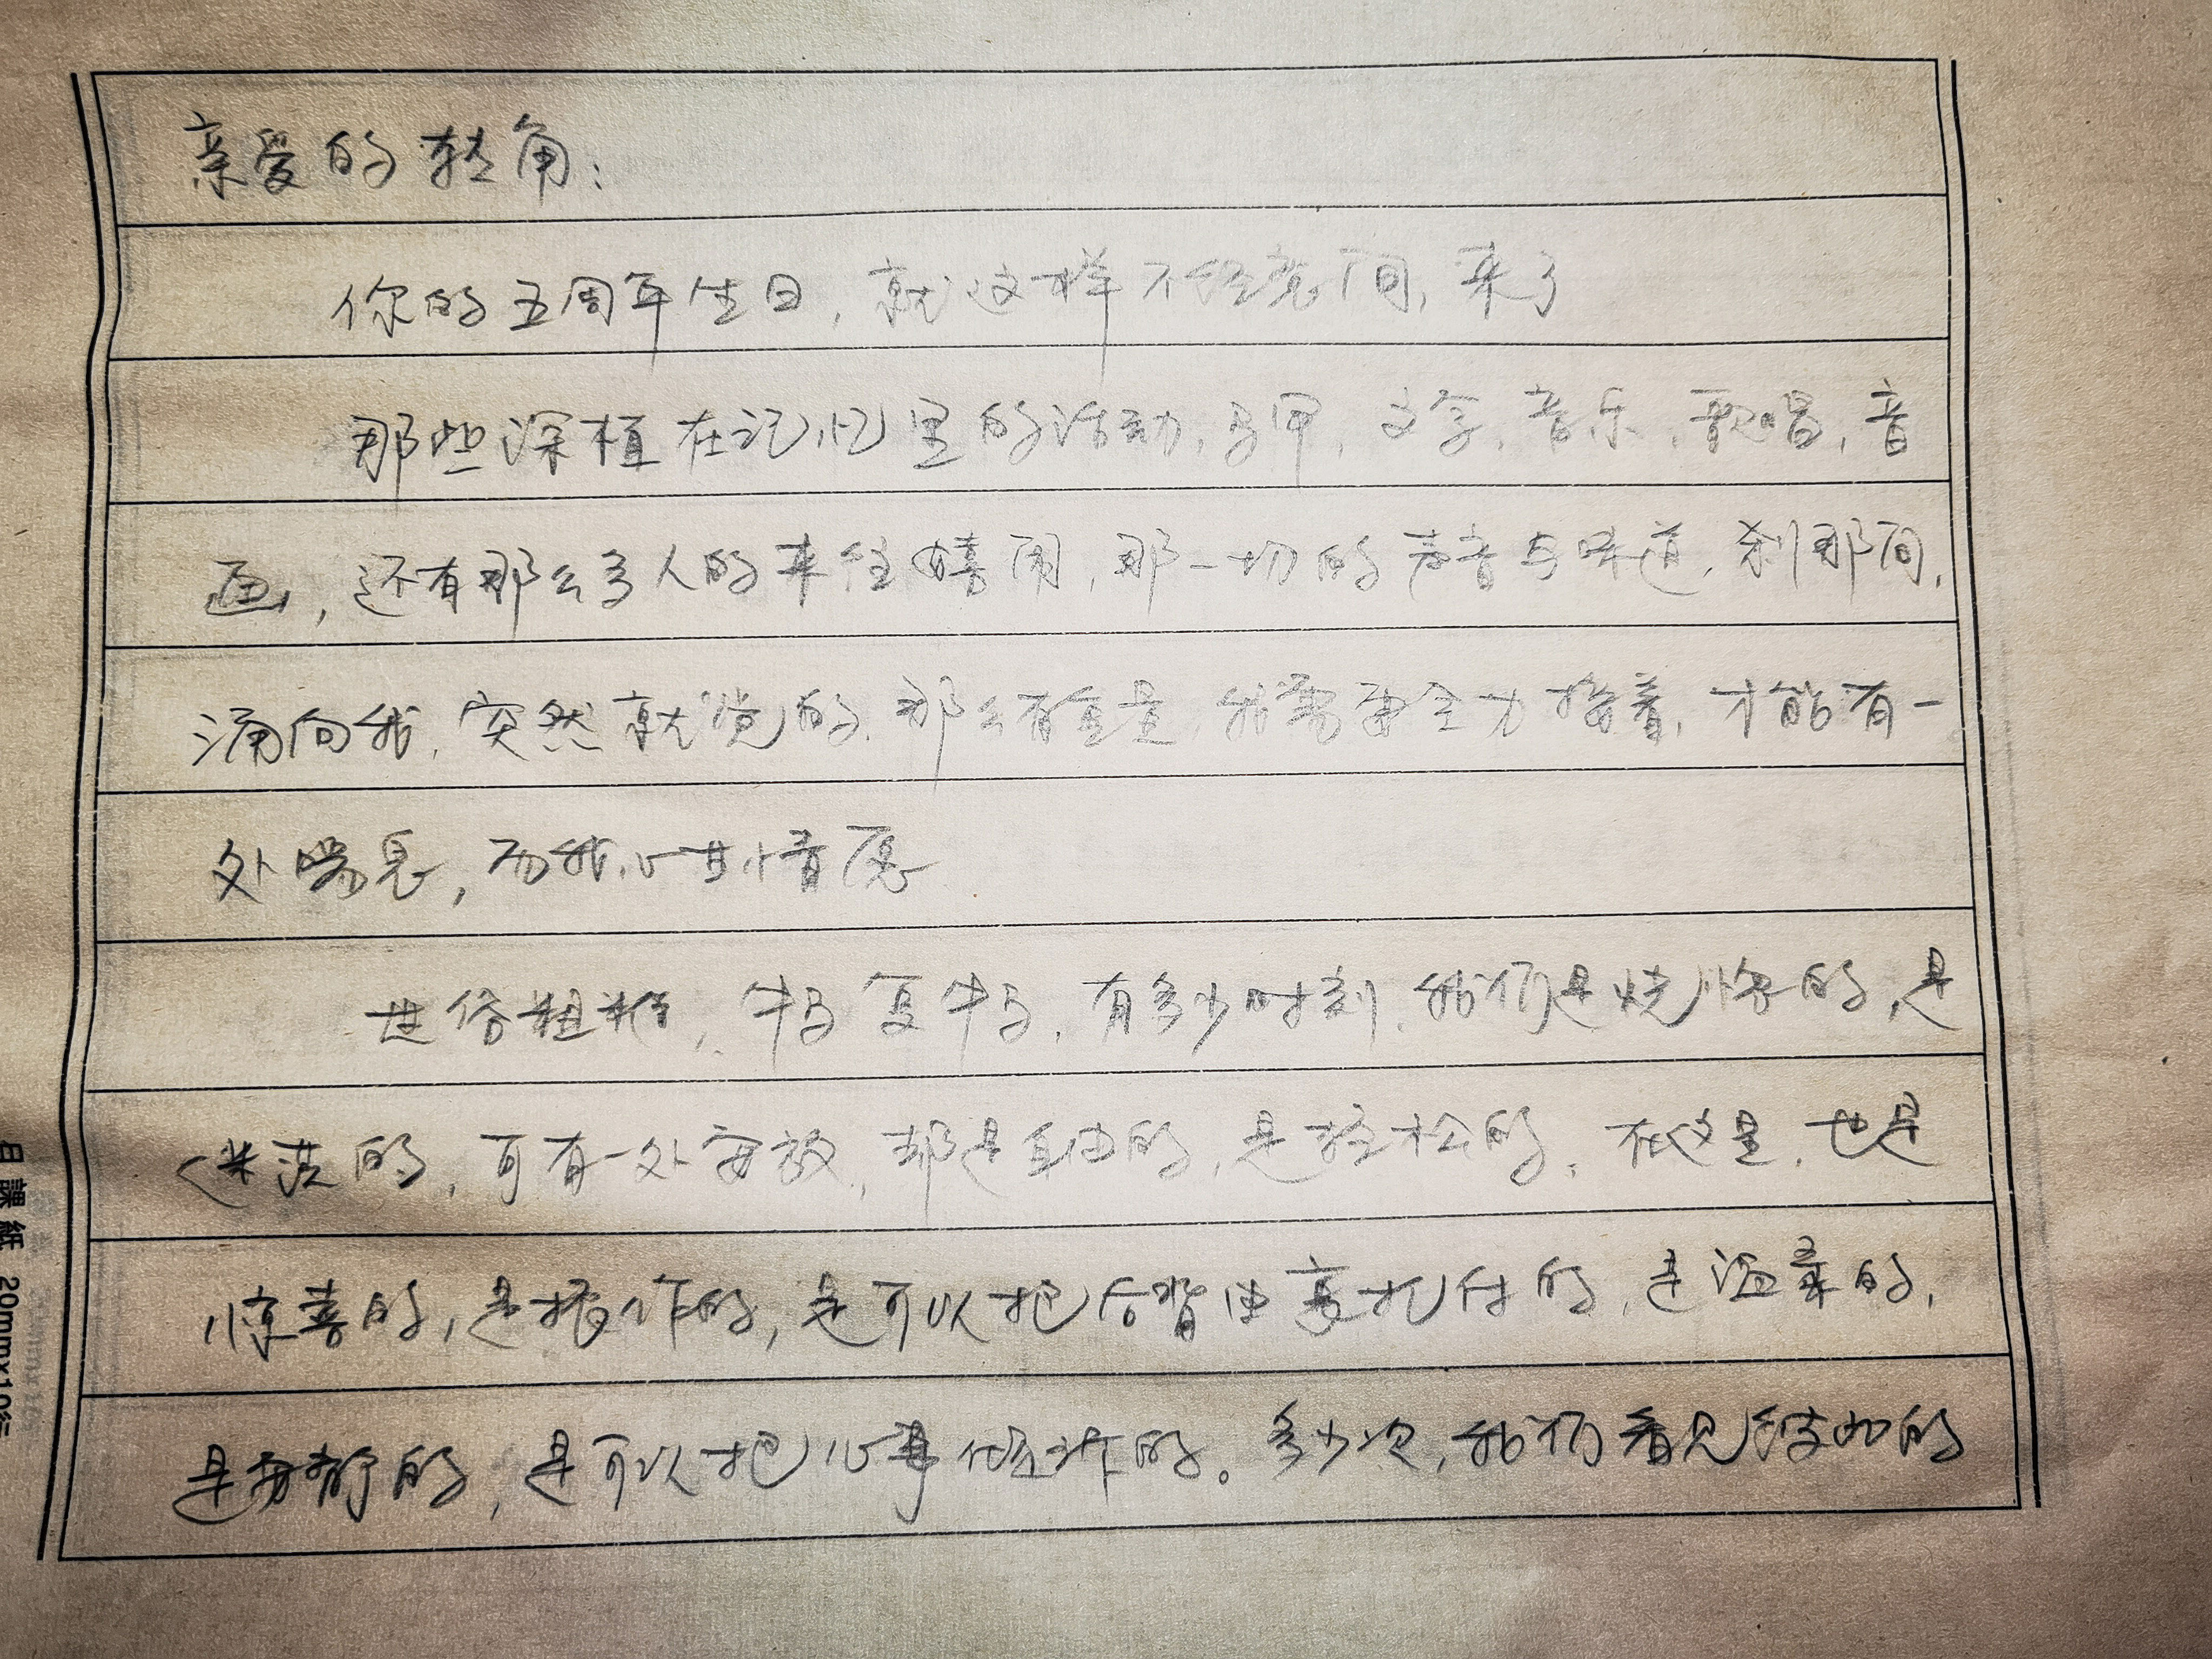 亲爱的转角:
你的五周年生日,就这样不经意间,来了
那些深植在记忆里的活动,另册,文字,音乐,歌唱,音
画,还有那么多人的来往嬉闹,那一切的声音与味道,刹那间,
涌向我,突然就觉的,那么有重量,我需要全力接着,才能有一
处喘息,而我心甘情愿.
世俗粗粝,年岁复年岁,有多少时刻,我们是恍惚的,是
迷茫的,可有一处安放,都是自由的,是轻松的,在这里,也是
惊喜的,是振作的,是可以把后背由衷托付的,是温柔的,
是安静的,是可以把心事倾诉的。多少次,我们看见彼此的
日課紙 20mm×10行